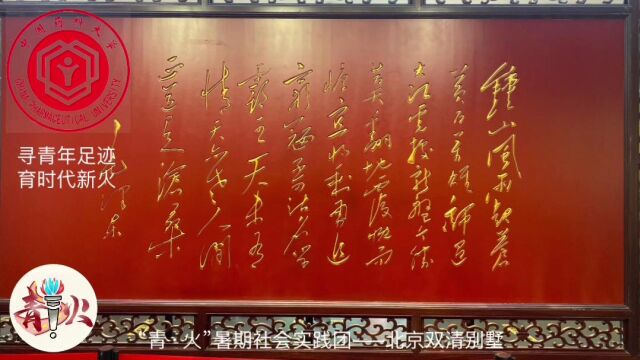 中国药科大学
CHINA PHARMACEUTICAL UNIVERSITY
寻青年足迹
育时代新火
鐘山風雨起蒼
黄百万雄師過
大江虎踞龍盤今勝
昔天翻地覆慨而
慷宜將剩勇追
窮寇不可沽名學
霸王天若有
情天亦老人間
正道是滄桑
毛澤東
青火
“青·火”暑期社会实践团——北京双清别墅